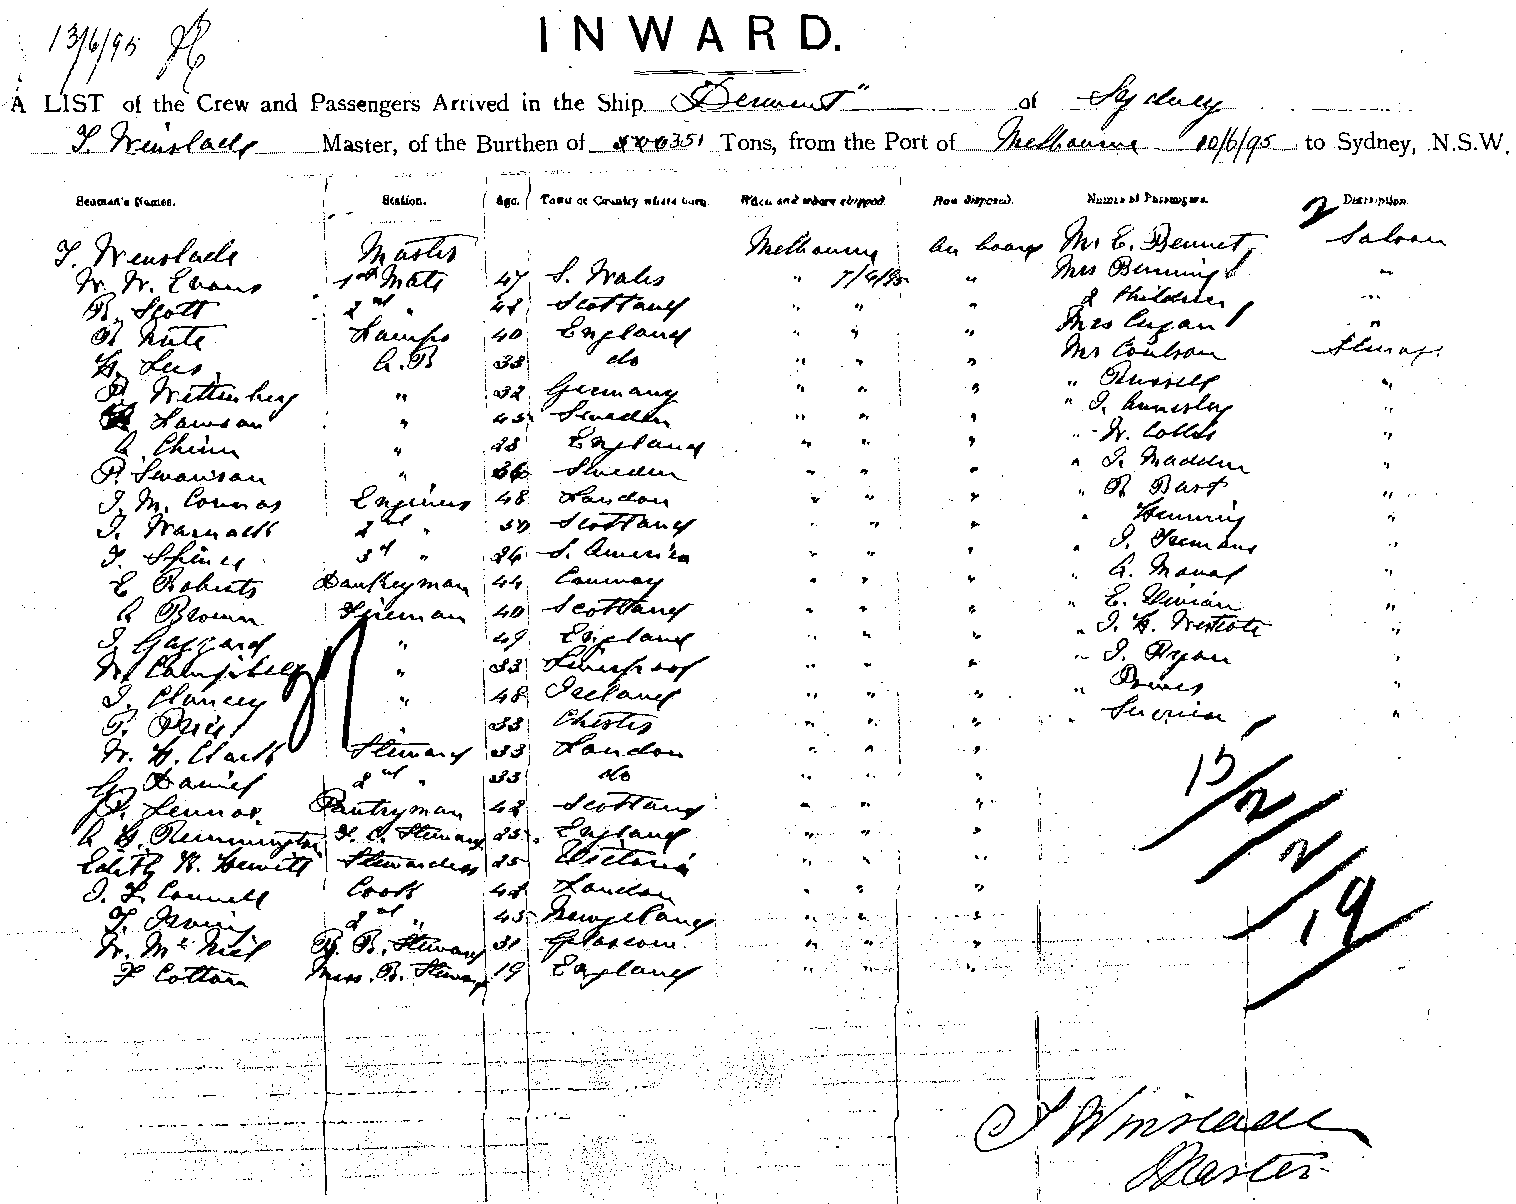 13/6/95
INWARD.
A LIST of the Crew and Passengers Arrived in the Ship "Derwent" of Sydney
T. Winslade Master, of the Burthen of 351 Tons, from the Port of Melbourne 10/6/95 to Sydney, N.S.W.
Seaman's Names. Station. Age. Town or Country where born. When and where shipped. How disposed. Names of Passengers. 2 Description.
T. Winslade Master Melbourne On board Mr E. Bennet Saloon
W. W. Evans 1st Mate 47 S. Wales " 7/6/95 " Mrs "
R. Scott 2nd " 42 Scotland " " " 2 Children "
R Lamps 40 England " " " Mrs "
H. Lees A.B 33 do " " " Mr Coulson Steerage
Wettenberg " 32 Germany " " " " Russell "
Lawson " 45 Sweden " " " " "
A. Chinn " 23 England " " " " W. "
P. Swanson " 36 Sweden " " " " J. Madden "
J. M. Connor Engineer 48 London " " " " R "
J. Warnack 2nd " Scotland " " " "
T. 3rd " 26 S. America " " " " J. "
E Roberts Donkeyman 44 Conway " " " " A. "
A Brown Fireman 40 Scotland " " " " E. Vivian "
J. Gaggard " 49 England " " " " J. H. Westcote "
W. Campbell " 33 Liverpool " " " " J. Ryan "
J. Clancey " 48 Ireland " " " " "
P. Price " 33 Chester " " " " "
W. H. Clark Steward 33 London " " "
G Daniel 2nd " 33 do " " "
P. Lennox Pantryman 42 Scotland " " "
A H. Remmington F. C. Steward 25 England " " "
Edith K. Hewitt Stewardess 25 Victoria " " "
J. F. Connell Cook 42 London " " "
T. Irving 2nd " 45 " " "
W. McNeil B. R. Steward 31 Glascow " " "
F Cotton Mess. R. Steward 19 England " " "
27
15/2/2/19
T Winslade
Master